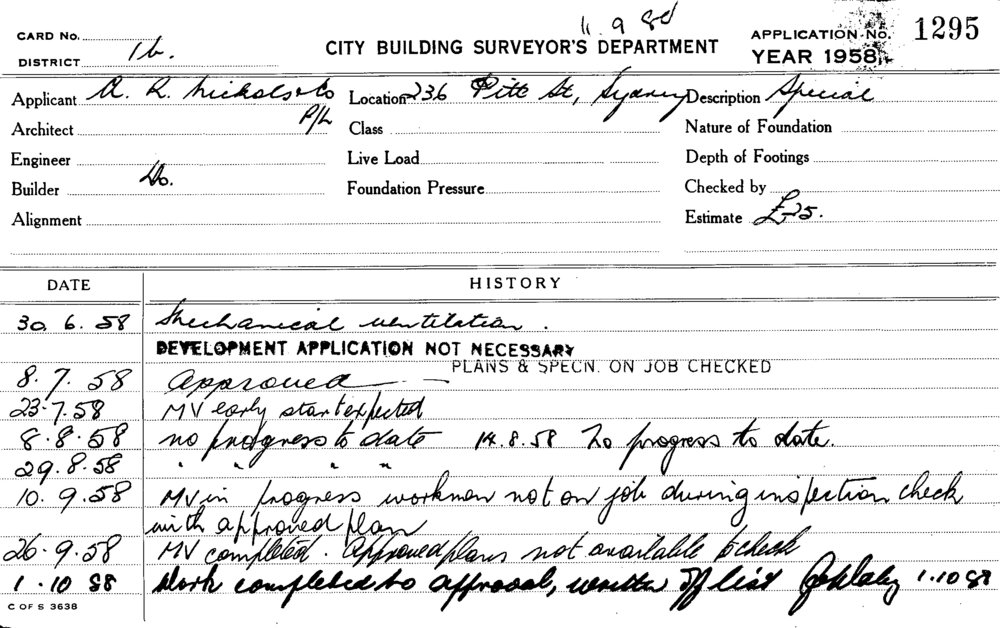 11 9 58
CARD No.
DISTRICT 1b.
CITY BUILDING SURVEYOR'S DEPARTMENT
APPLICATION No. 1295
YEAR 1958
Applicant A. R. Nicholls & Co P/L
Location 236 Pitt St, Sydney
Description Special
Architect
Class
Nature of Foundation
Engineer
Live Load
Depth of Footings
Builder Do.
Foundation Pressure
Checked by
Alignment
Estimate £25.
DATE HISTORY
30.6.58 Mechanical ventilation.
DEVELOPMENT APPLICATION NOT NECESSARY
PLANS & SPECN. ON JOB CHECKED
8.7.58 Approved
23.7.58 MV early start expected
8.8.58 no progress to date 14.8.58 No progress to date.
29.8.58 " " " "
10.9.58 MV in progress workmen not on job during inspection check
with approved plan
26.9.58 MV completed. Approved plans not available to check
1.10 58 Work completed to approval, written off list 1.10 58
C OF S 3638